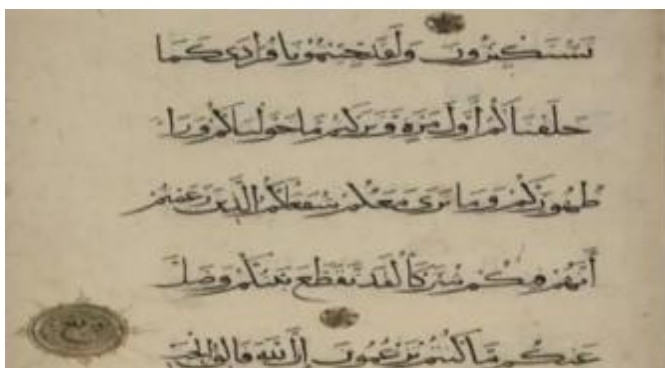 تستكبرون ولقد جئتمونا فرادى كما
خلقناكم أول مرة وتركتم ما خولناكم ورا
ظهوركم وما نرى معكم شفعكم الذين زعمتم
أنهم فيكم شركا لقد تقطع بينكم وضل
عنكم ما كنتم تزعمون إن الله فالق الحب